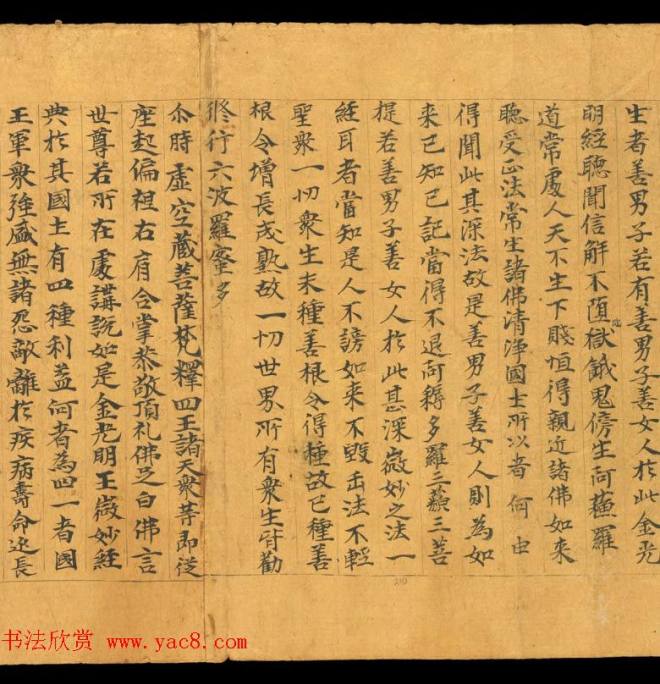 生者善男子若有善男子善女人於此金光
明經聽聞信解不墮地獄餓鬼傍生阿蘓羅
道常處人天不生下賤恒得親近諸佛如來
聽受正法常生諸佛清淨國土所以者何由
得聞此其深法故是善男子善女人則為如
來已知已記當得不退阿耨多羅三藐三菩
提若善男子善女人於此甚深微妙之法一
經耳者當知是人不謗如來不毀正法不輕
聖衆一切衆生未種善根令得種故已種善
根令增長成熟故一切世界所有衆生皆勸
修行六波羅蜜多
尒時虛空藏菩薩梵釋四王諸天衆等即從
座起偏袒右肩合掌恭敬頂礼佛足白佛言
世尊若所在處講說如是金光明王微妙經
典於其國土有四種利益何者為四一者國
王軍衆強盛無諸怨敵離於疾病壽命延長
书法欣赏 www.yac8.com